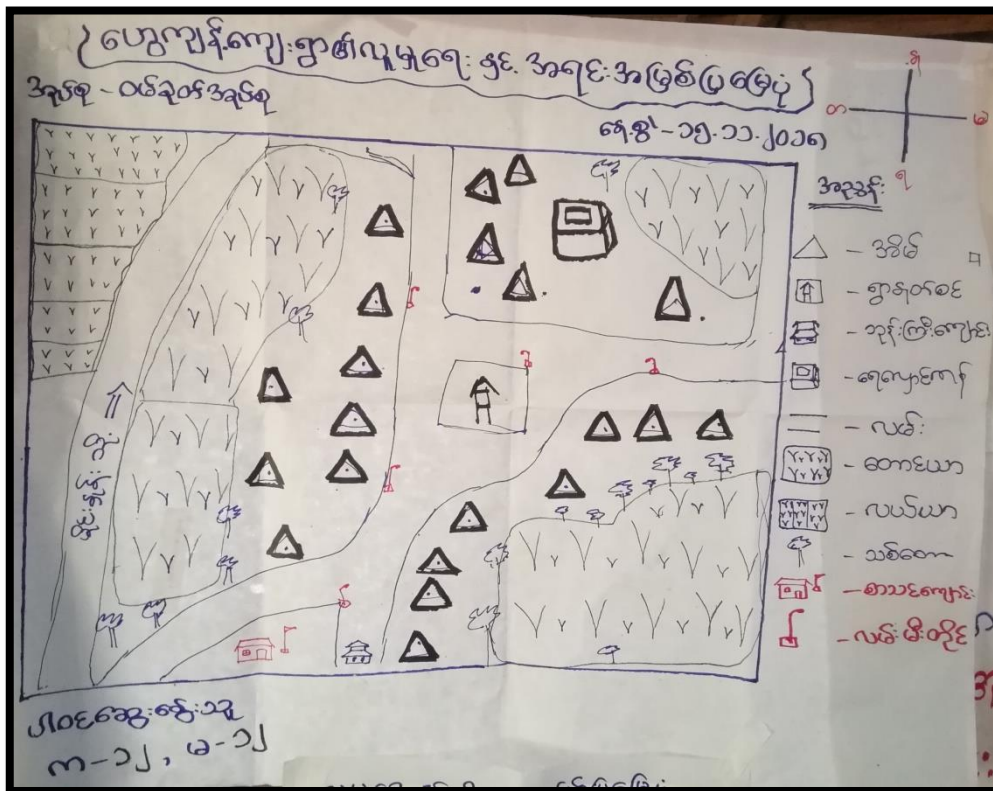 ဟွေကျန်.ကျေးရွာ၏လူမှုရေး နှင့် အရင်းအမြစ်ပြမြေပုံ
အုပ်စု - ဝမ်ခုတ်အုပ်စု
နေ့စွဲ - ၁၅.၁၁.၂၀၁၈
တ
မ
အညွှန်း
- အိမ်
- ရွာနတ်စင်
- ဘုန်းကြီးကျောင်း
- ရေလှောင်ကန်
- လမ်း
- တောင်ယာ
- လယ်ယာ
- သစ်တော
- စာသင်ကျောင်း
- လမ်းမီးတိုင်
ပါဝင်ဆွေးနွေးသူ
ကာ-၁၂, မ-၁၂